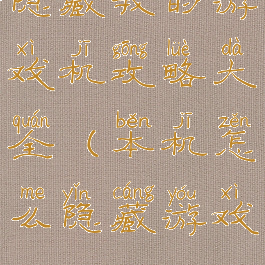 隐藏教的游
xì jī gōng lüè dà
戏机攻略大
quán běn jī zěn
全(本机怎
me yǐn cáng yóu xì
么隐藏游戏